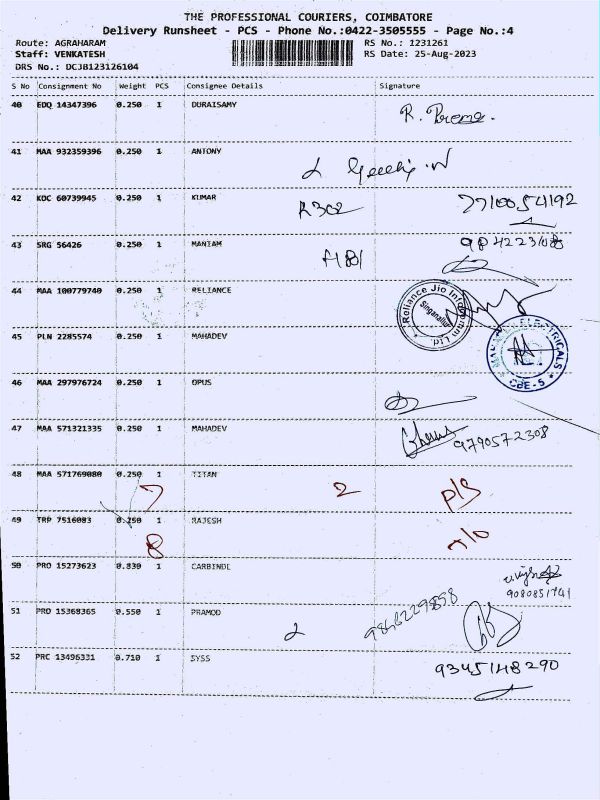 THE PROFESSIONAL COURIERS, COIMBATORE
Delivery Runsheet - PCS - Phone No.:0422-3505555 - Page No.:4
Route: AGRAHARAM RS No.: 1231261
Staff: VENKATESH RS Date: 25-Aug-2023
DRS No.: DCJB123126104
S No Consignment No Weight PCS Consignee Details Signature
40 EDQ 14347396 0.250 1 DURAISAMY
R. Prema.
41 MAA 932359396 0.250 1 ANTONY
42 KDC 60739945 0.250 1 KUMAR
R302 7710054192
43 SRG 56426 0.250 1 MANIAM
44 MAA 100779740 0.250 1 RELIANCE
Reliance Jio Infocomm Ltd.
Singanallur
45 PLN 2285574 0.250 1 MAHADEV
ELECTRICALS
CBE-5
46 MAA 297976724 0.250 1 OPUS
47 MAA 571321335 0.250 1 MAHADEV
9790572308
48 MAA 571769080 0.250 1 TITAN
7 2 P/S
49 TRP 7516083 0.250 1 RAJESH
8
50 PRO 15273623 0.830 1 CARBINDL
9080851741
51 PRO 15368365 0.550 1 PRAMOD
2
52 PRC 13496331 0.710 1 SYSS
9345148290